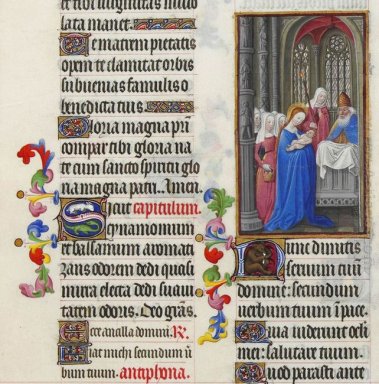 te tibi virginitas inviolata
lata manet.
Te mater pietatis
opem te clamitat orbis
subvenias famulis o
benedicta tuis.
Gloria magna pri
compar tibi gloria na
te cum sancto spiritui glo
ria magna patri. Amen.
Sicut capitulum.
Cynamomum
et balsamum aromati
zans odorem dedi quasi
mirra electa dedi suavi
tatem odoris. Deo gras.
Ecce ancilla domini. R.
Fiat michi secundum v
bum tuum. antiphona.
Nunc dimittis
servum tuum
domine: secundum
verbum tuum i pace.
Quia viderunt oculi
mei: salutare tuum.
Quod parasti ante